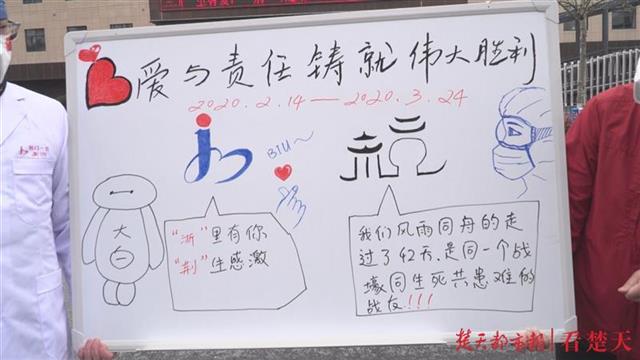 爱与责任铸就伟大胜利
2020.2.14—2020.3.24
BIU~
大
白
“浙”里有你
“荆”生感激
我们风雨同舟的走
过了42天.是同一个战
壕同生死共患难的
战友!!!
楚天都市报|看楚天